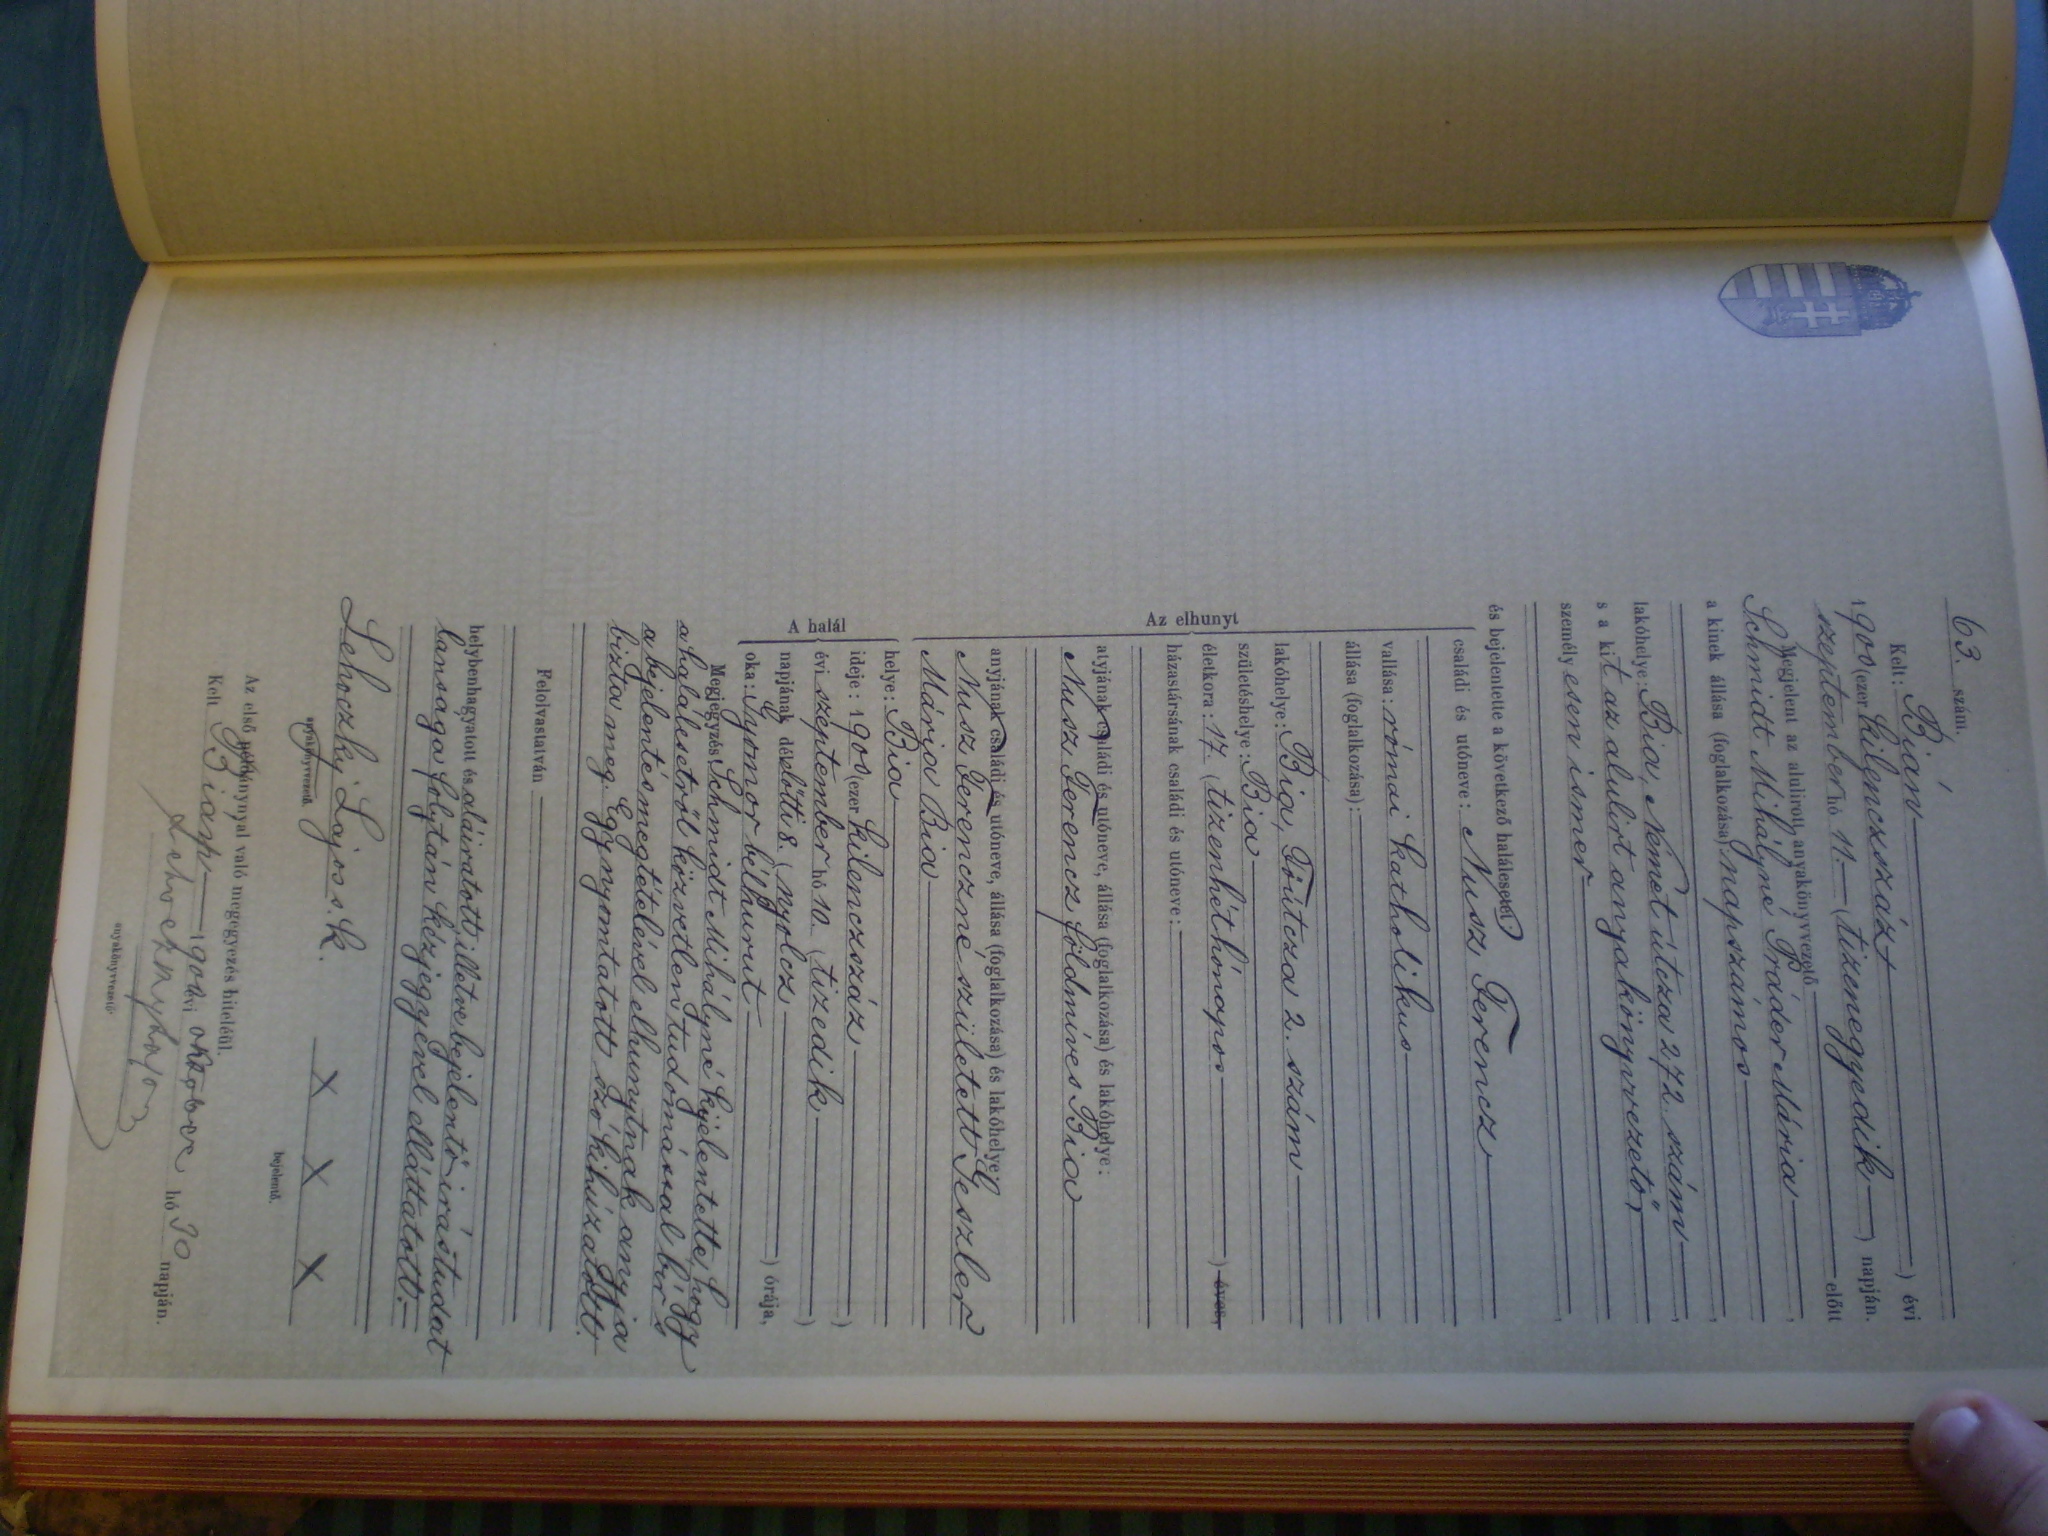 63. szám.
Kelt: Bián
1900 (ezer kilenczszáz) évi
szeptember hó 11. (tizenegyedik) napján.
Megjelent az alulirott anyakönyvvezető előtt
Schmidt Mihályné Práder Mária,
a kinek állása (foglalkozása) napszámos,
lakóhelye: Bia, Német útcza 272. szám,
s a kit az alulirt anyakönyvvezető,
személyesen ismer,
és bejelentette a következő halálesetet
Az elhunyt
családi és utóneve: Nusz Ferencz
vallása: római katholikus
állása (foglalkozása):
lakóhelye: Bia, Főútcza 2. szám
születéshelye: Bia
életkora: 17. (tizenhét hónapos) éves,
házastársának családi és utóneve:
atyjának családi és utóneve, állása (foglalkozása) és lakóhelye:
Nusz Ferencz földmíves Bia
anyjának családi és utóneve, állása (foglalkozása) és lakóhelye
Nusz Ferenczné született Geszler
Mária Bia
A halál
helye: Bia
ideje: 1900 (ezer kilenczszáz)
évi szeptember hó 10. (tizedik)
napjának délelőtti 8. (nyolcz) órája,
oka: Gyomor bélhurut
Megjegyzés Schmidt Mihályné kijelentette, hogy
a halálesetről közvetlen tudomással bír s
a bejelentés megtételével elhunytnak anyja
bízta meg. Egy nyomtatott szó kihúzatott.
Felolvastatván
helybenhagyatott és aláiratott illetve bejelentő irástudat
lansága folytán kézjegyével elláttatott.
Lehoczky Lajos s. k. X X X
anyakönyvvezető. bejelentő.
Az első példánynyal való megegyezés hiteléül.
Kelt Bián 1900 évi október hó 30 napján.
Lehoczky Lajos
anyakönyvvezető.